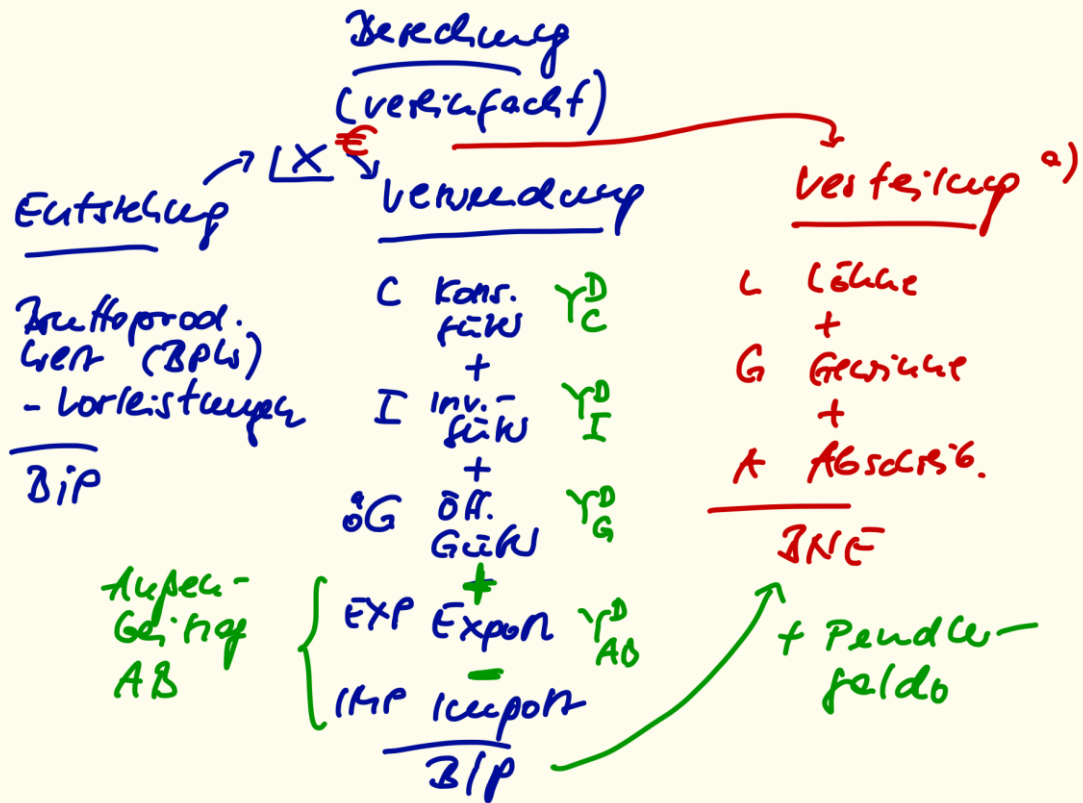 Berechnung
(vereinfacht)
€
LX
Entstehung
Bruttoprod.
wert (BPW)
- Vorleistungen
BiP
Verwendung
C Kons. güter Y^D_C
+
I Inv.- güter Y^D_I
+
öG Öff. Güter Y^D_G
+
EXP Export Y^D_AB
-
IMP Import
BIP
Außen-
beitrag
AB
Verteilung a)
L Löhne
+
G Gewinne
+
A Abschreib.
BNE
+ Pendler-
saldo